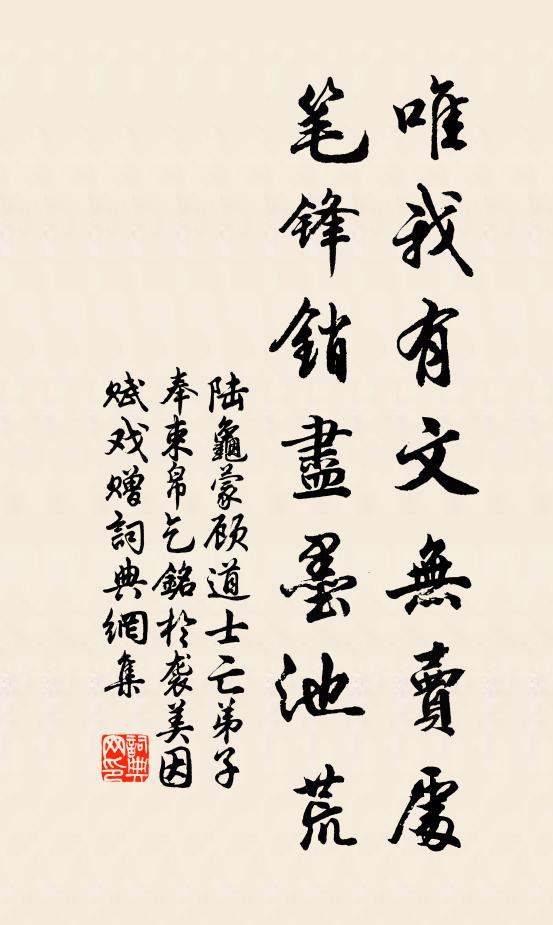 唯我有文無賣處
笔锋銷盡墨池荒
陆龜蒙顾道士亡弟子
奉束帛乞銘於袭美因
赋戏赠詞典網集
詞典网印